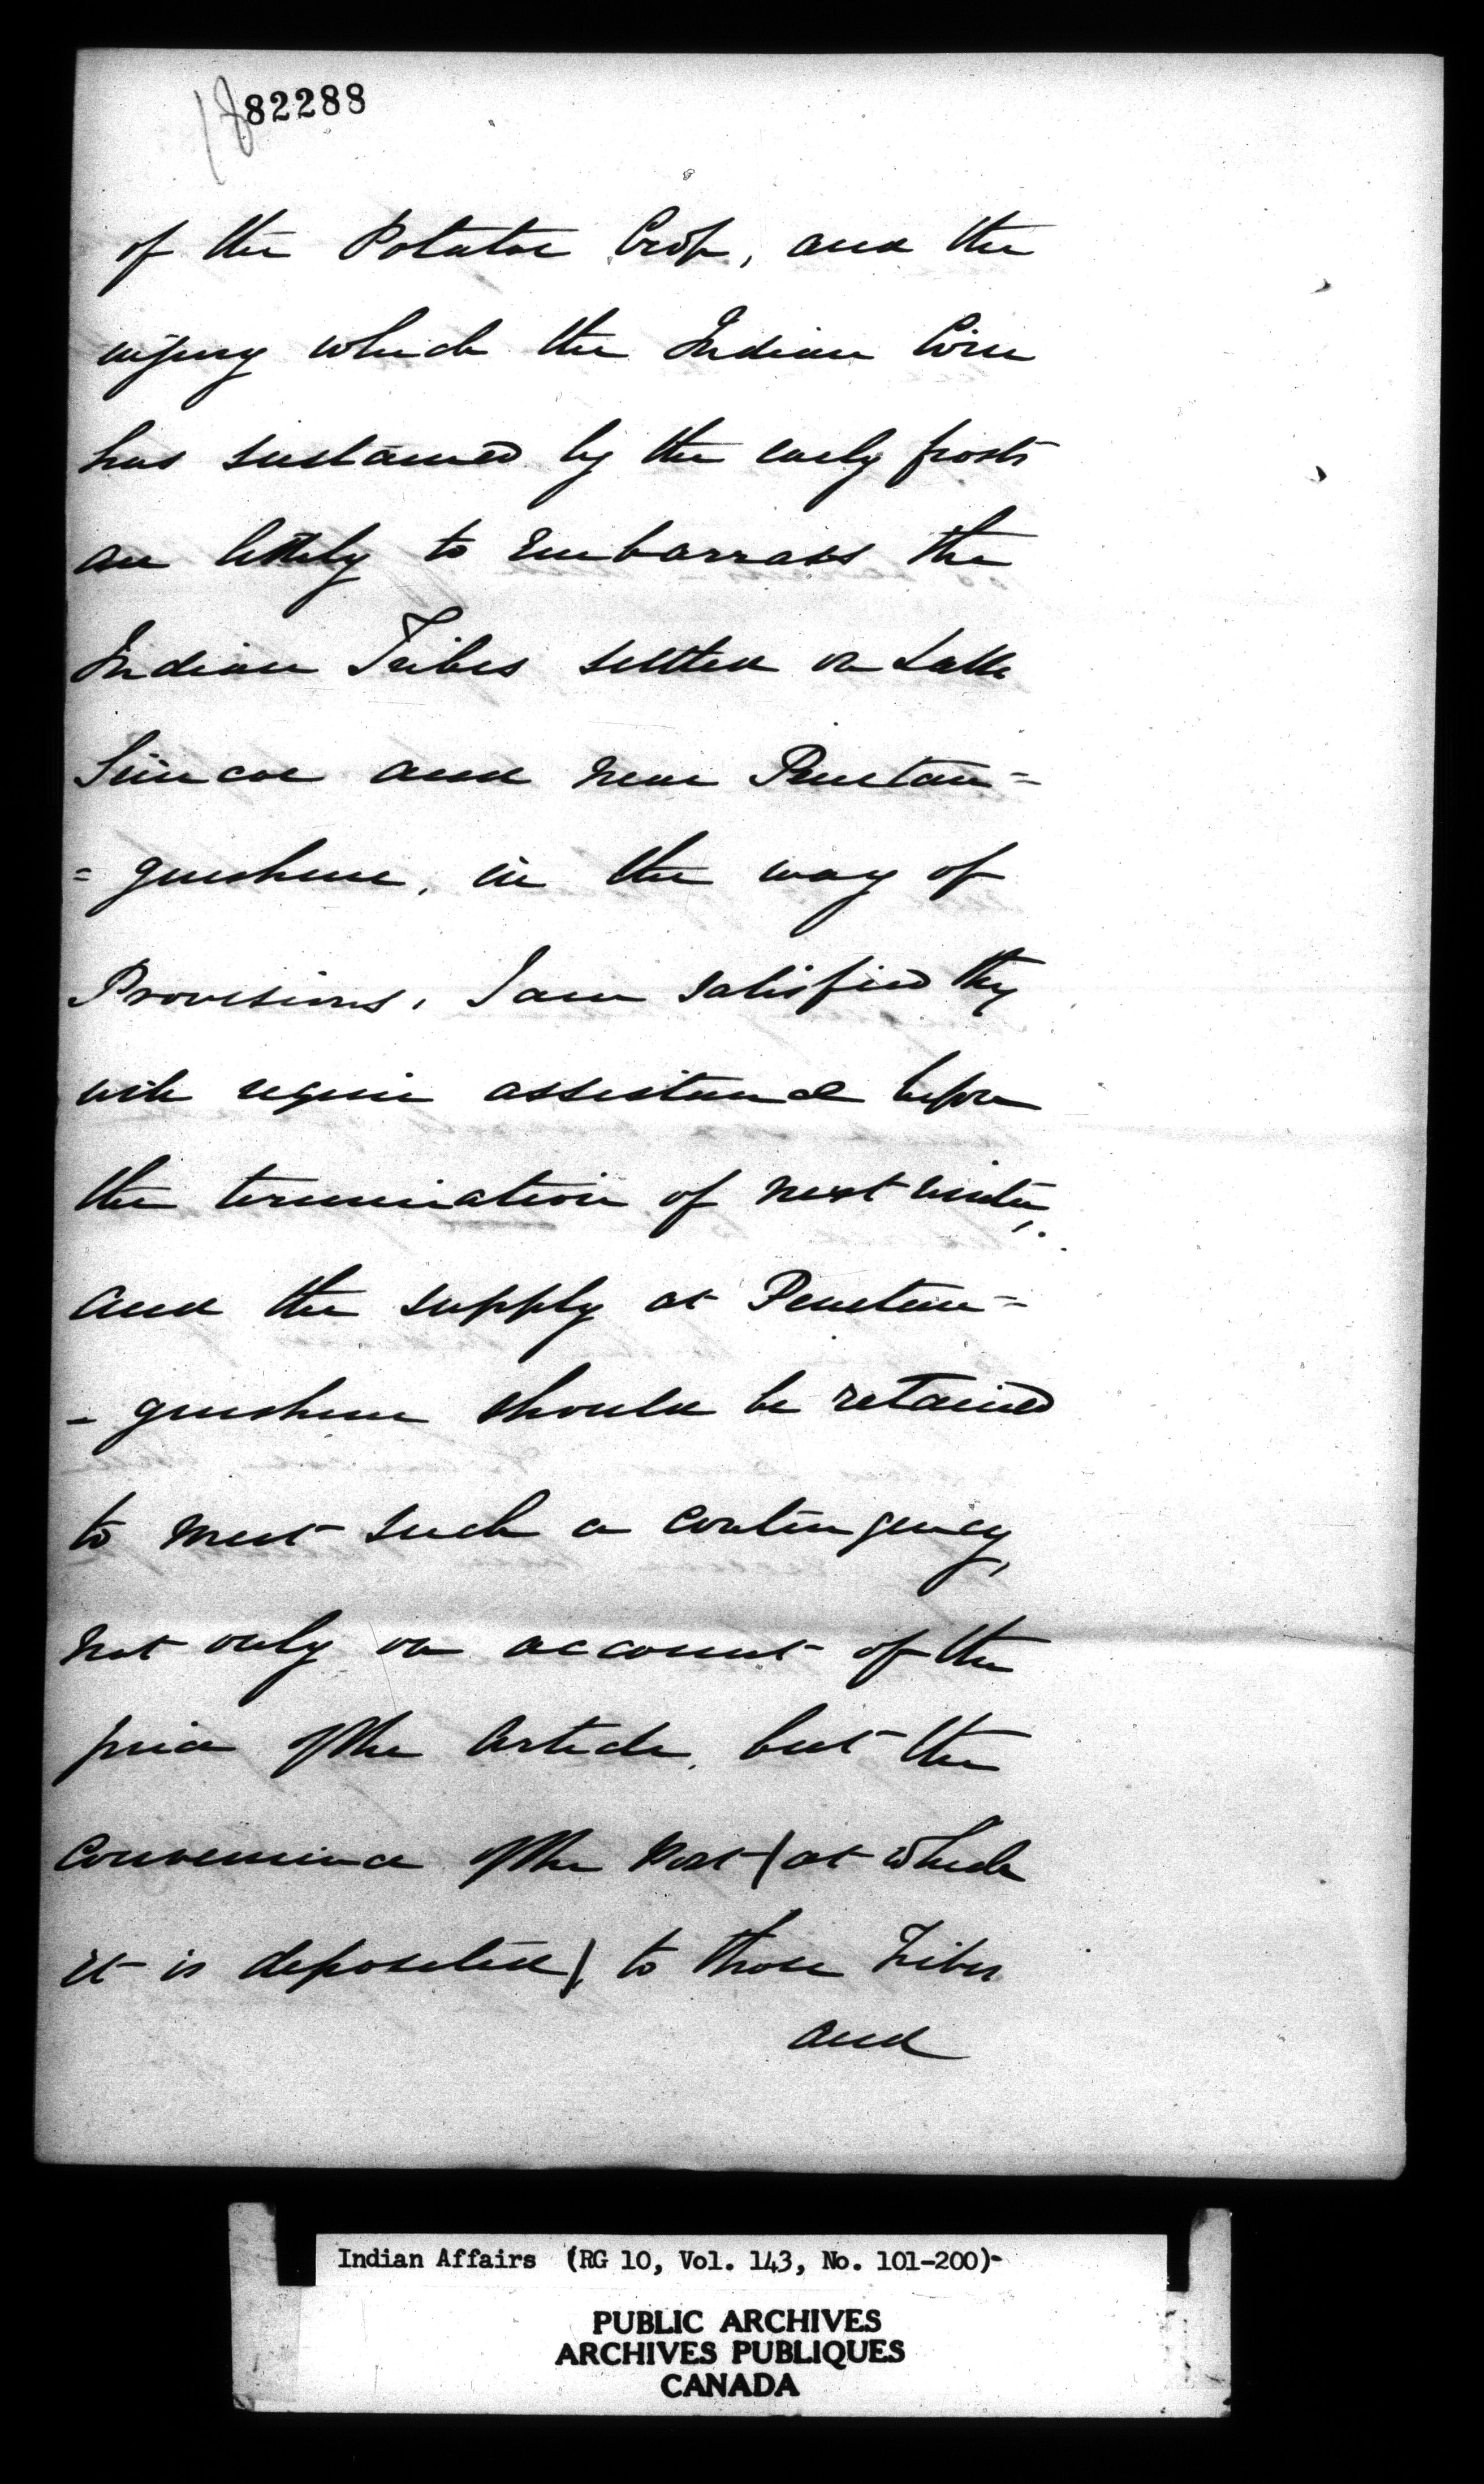 82288
of the Potatoe Crop, and the
injury which the Indian Corn
has sustained by the early frosts
are likely to embarrass the
Indian Tribes settled on Lake
Simcoe and near Penetan=
=guishene, in the way of
Provisions, I am satisfied they
will require assistance before
the termination of next winter,
and the supply at Penetan=
- guishene should be retained
to meet such a contingency,
not only on account of the
price of the Article, but the
convenience of the Post (at which
it is deposited) to those Tribes
and
Indian Affairs (RG 10, Vol. 143, No. 101-200)-
PUBLIC ARCHIVES
ARCHIVES PUBLIQUES
CANADA